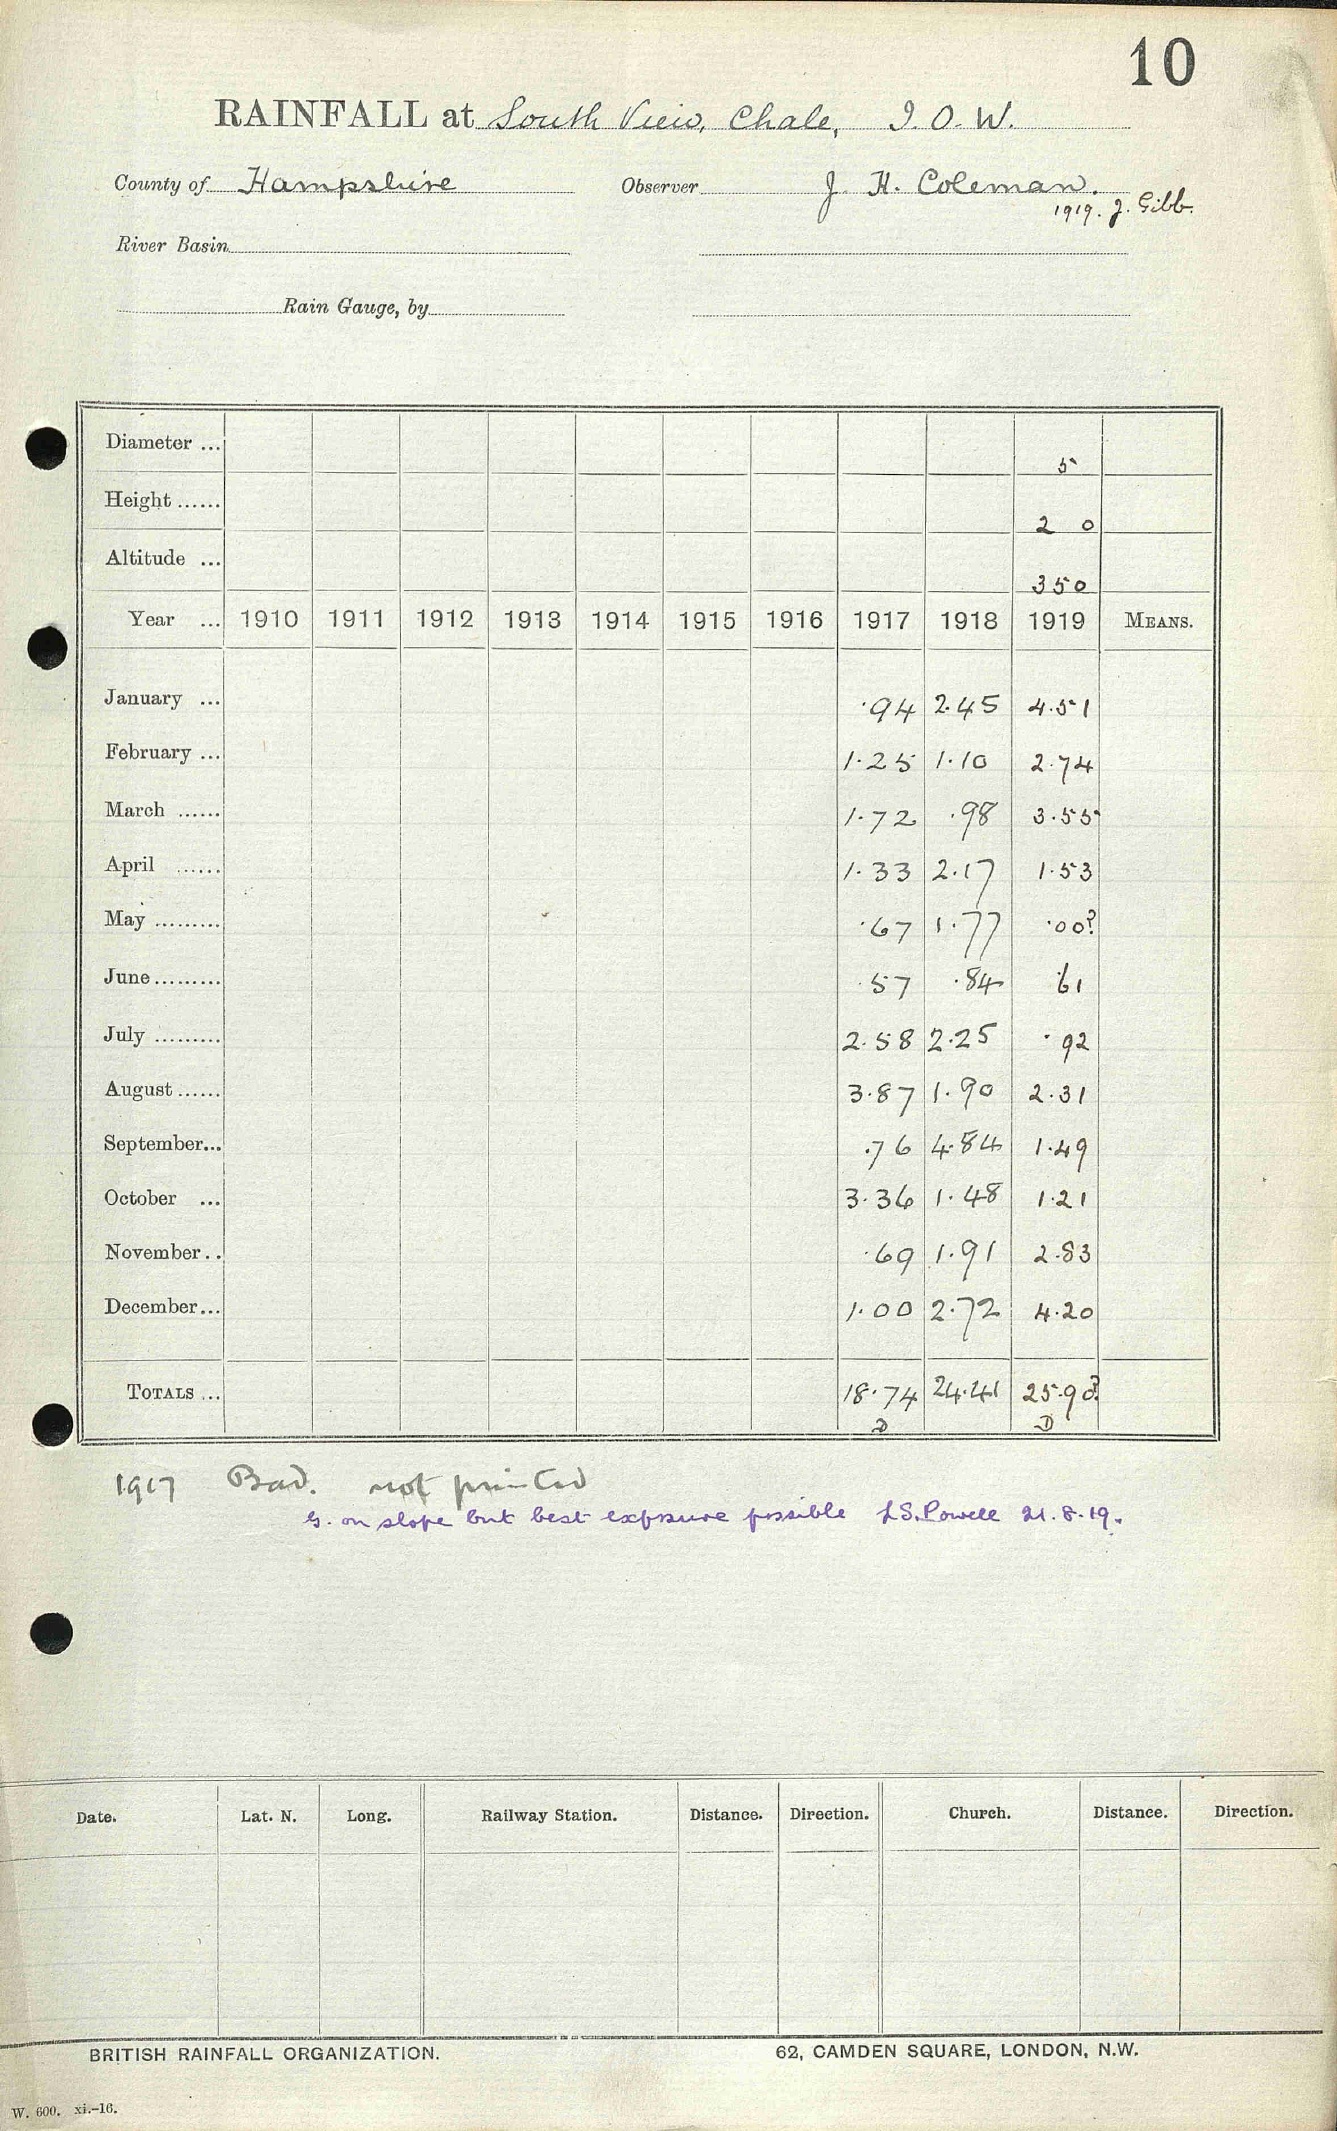 10
RAINFALL at South View, Chale, I.O.W.
County of Hampshire Observer J. H. Coleman.
1919. J. Gibb.
River Basin
Rain Gauge, by
Diameter ... 5
Height ...... 2 0
Altitude ... 350
Year ... 1910 1911 1912 1913 1914 1915 1916 1917 1918 1919 MEANS.
January ... .94 2.45 4.51
February ... 1.25 1.10 2.74
March ...... 1.72 .98 3.55
April ...... 1.33 2.17 1.53
May ......... .67 1.77 .00?
June ......... .57 .84 .61
July ......... 2.58 2.25 .92
August ...... 3.87 1.90 2.31
September... .76 4.84 1.49
October ... 3.36 1.48 1.21
November .. .69 1.91 2.83
December... 1.00 2.72 4.20
TOTALS ... 18.74 24.41 25.90?
D D
1917 Bad. not printed
G. on slope but best exposure possible L.S. Powell 21.8.19.
Date. Lat. N. Long. Railway Station. Distance. Direction. Church. Distance. Direction.
BRITISH RAINFALL ORGANIZATION. 62, CAMDEN SQUARE, LONDON, N.W.
W. 600. xi.-16.